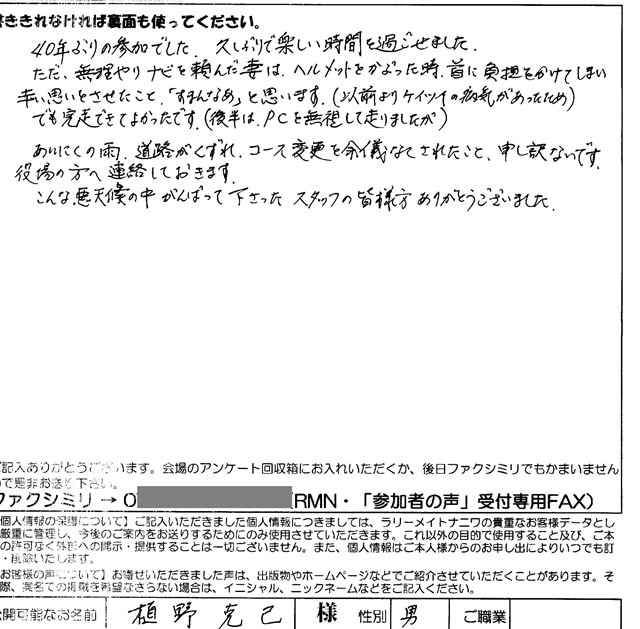 書ききれなければ裏面も使ってください。
40年ぶりの参加でした。久しぶりで楽しい時間を過ごせました。
ただ、無理やりナビを頼んだ妻は、ヘルメットをかぶった時、首に負担をかけてしまい
辛い思いをさせたこと、「すまんなあ」と思います。(以前よりケイツイの病気があったため)
でも完走できてよかったです。(後半は、PCを無視して走りましたが)
あいにくの雨、道路がくずれ、コース変更を余儀なくされたこと、申し訳ないです。
役場の方へ連絡しておきます。
こんな悪天候の中がんばって下さった スタッフの皆様方 ありがとうございました。
ご記入ありがとうございます。会場のアンケート回収箱にお入れいただくか、後日ファクシミリでもかまいません
ので是非お送り下さい。
ファクシミリ → 0 (RMN・「参加者の声」受付専用FAX)
個人情報の保護について】ご記入いただきました個人情報につきましては、ラリーメイトナニワの貴重なお客様データとし
厳重に管理し、今後のご案内をお送りするためにのみ使用させていただきます。これ以外の目的で使用すること及び、ご本
の許可なく外部への開示・提供することは一切ございません。また、個人情報はご本人様からのお申し出によりいつでも訂
・削除いたします。
お客様の声について】お寄せいただきました声は、出版物やホームページなどでご紹介させていただくことがあります。そ
際、実名での掲載を希望なさらない場合は、イニシャル、ニックネームなどをご記入ください。
公開可能なお名前 植野克己 様 性別 男 ご職業